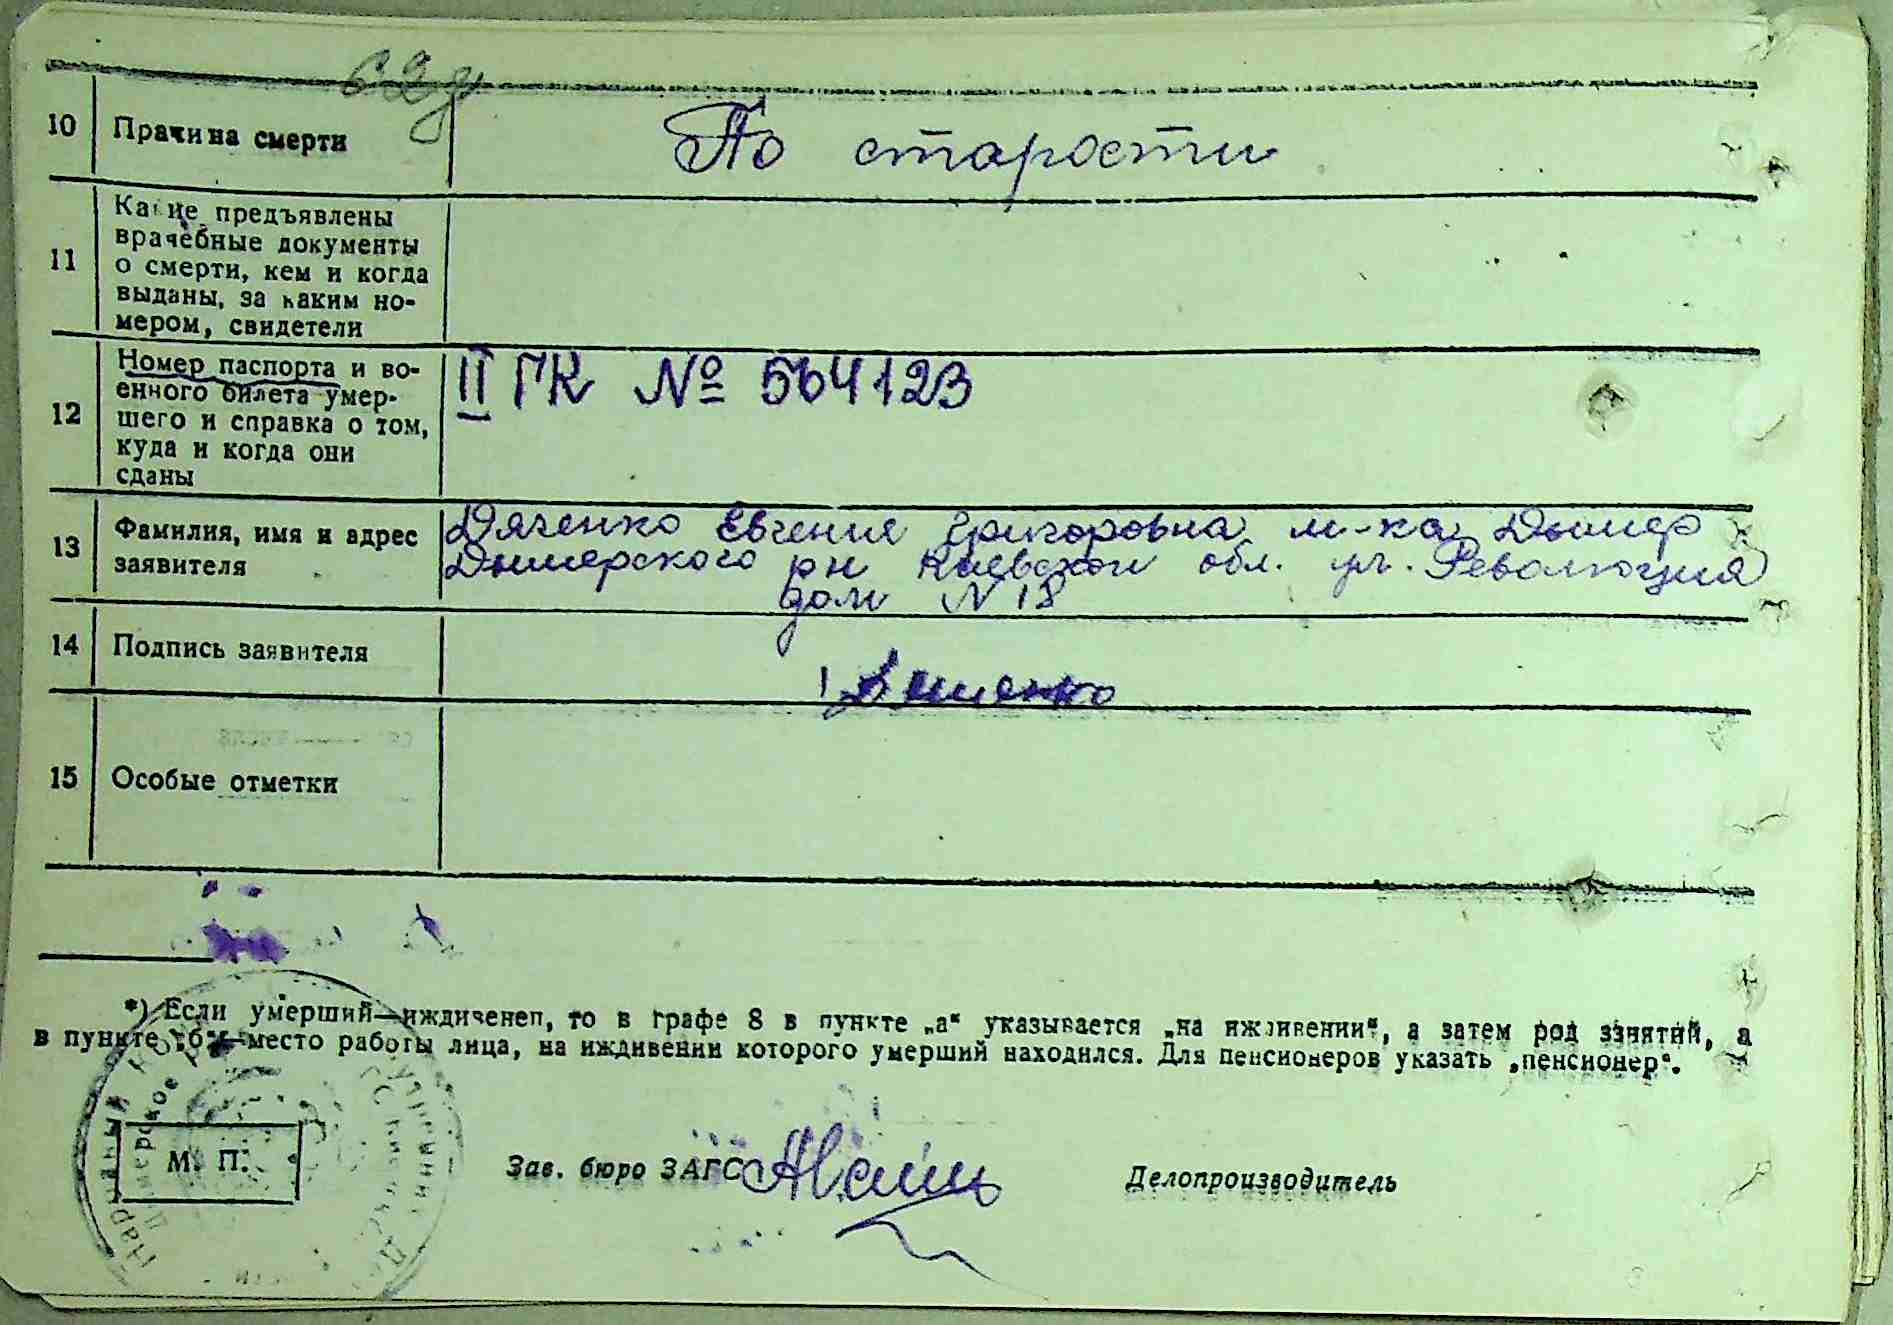 62г
10 Причина смерти По старости
11 Какие предъявлены
врачебные документы
о смерти, кем и когда
выданы, за каким но-
мером, свидетели
12 Номер паспорта и во-
енного билета умер-
шего и справка о том,
куда и когда они
сданы
II ГК № 564123
13 Фамилия, имя и адрес
заявителя
Дяченко Евгения Григоровна м-ка Дымер
Дымерского рн Киевской обл. ул. Революция
дом N 18
14 Подпись заявителя
15 Особые отметки
*) Если умерший—иждивенец, то в графе 8 в пункте „а“ указывается „на иждивении“, а затем род занятий, а
в пункте „б“—место работы лица, на иждивении которого умерший находился. Для пенсионеров указать „пенсионер“.
М. П.
Зав. бюро ЗАГС Делопроизводитель